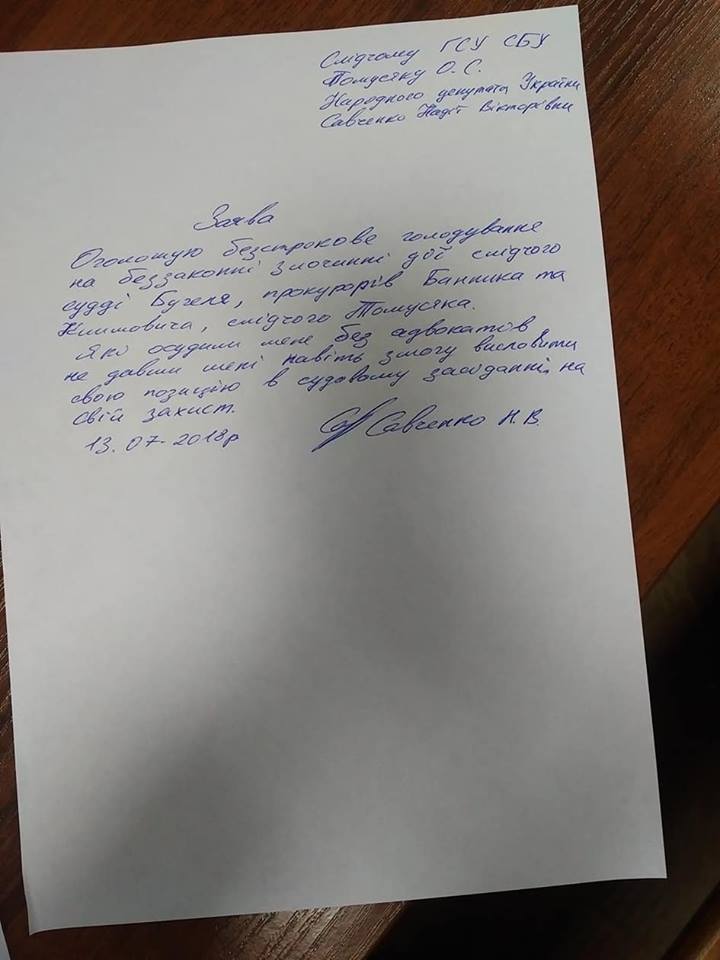 Слідчому ГСУ СБУ
Томусяку О. С.
Народного депутата України
Савченко Надії Вікторівни
Заява
Оголошую безстрокове голодування
на беззаконні злочинні дії слідчого
судді Бугеля, прокурорів Банника та
Климовича, слідчого Томусяка.
Які осудили мене без адвокатів,
не давши мені навіть змогу висловити
свою позицію в судовому засіданні, на
свій захист.
13.07-2018р Савченко Н.В.